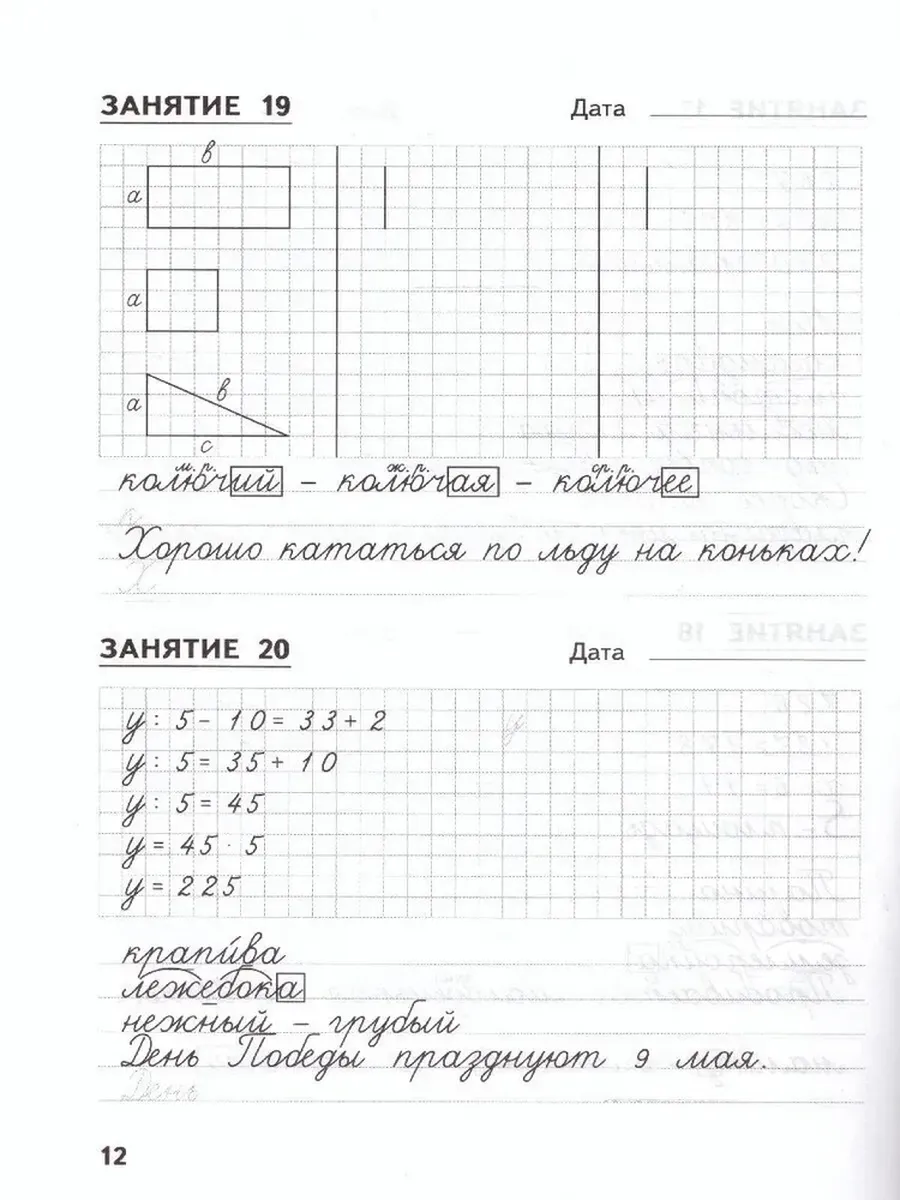 ЗАНЯТИЕ 19 Дата
в
а
а
а в
с
м.р. ж.р. ср.р.
колючий – колючая – колючее
Хорошо кататься по льду на коньках!
Х
ЗАНЯТИЕ 20 Дата
у : 5 - 10 = 33 + 2 у
у : 5 = 35 + 10
у : 5 = 45
у = 45 · 5
у = 225
крапи́ва
лежебока
нежный – грубый
День Победы празднуют 9 мая.
День
12